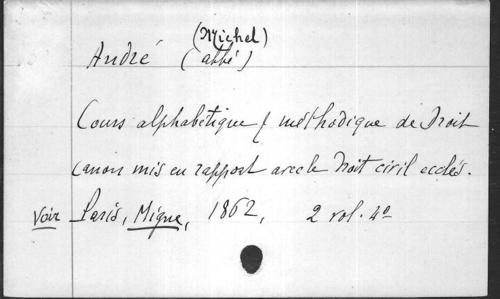 (Michel)
André (abbé)
Cours alphabétique & méthodique de Droit
canon mis en rapport avec le Droit civil ecclés.
Voir Paris, Migne, 1862, 2 vol. 4º